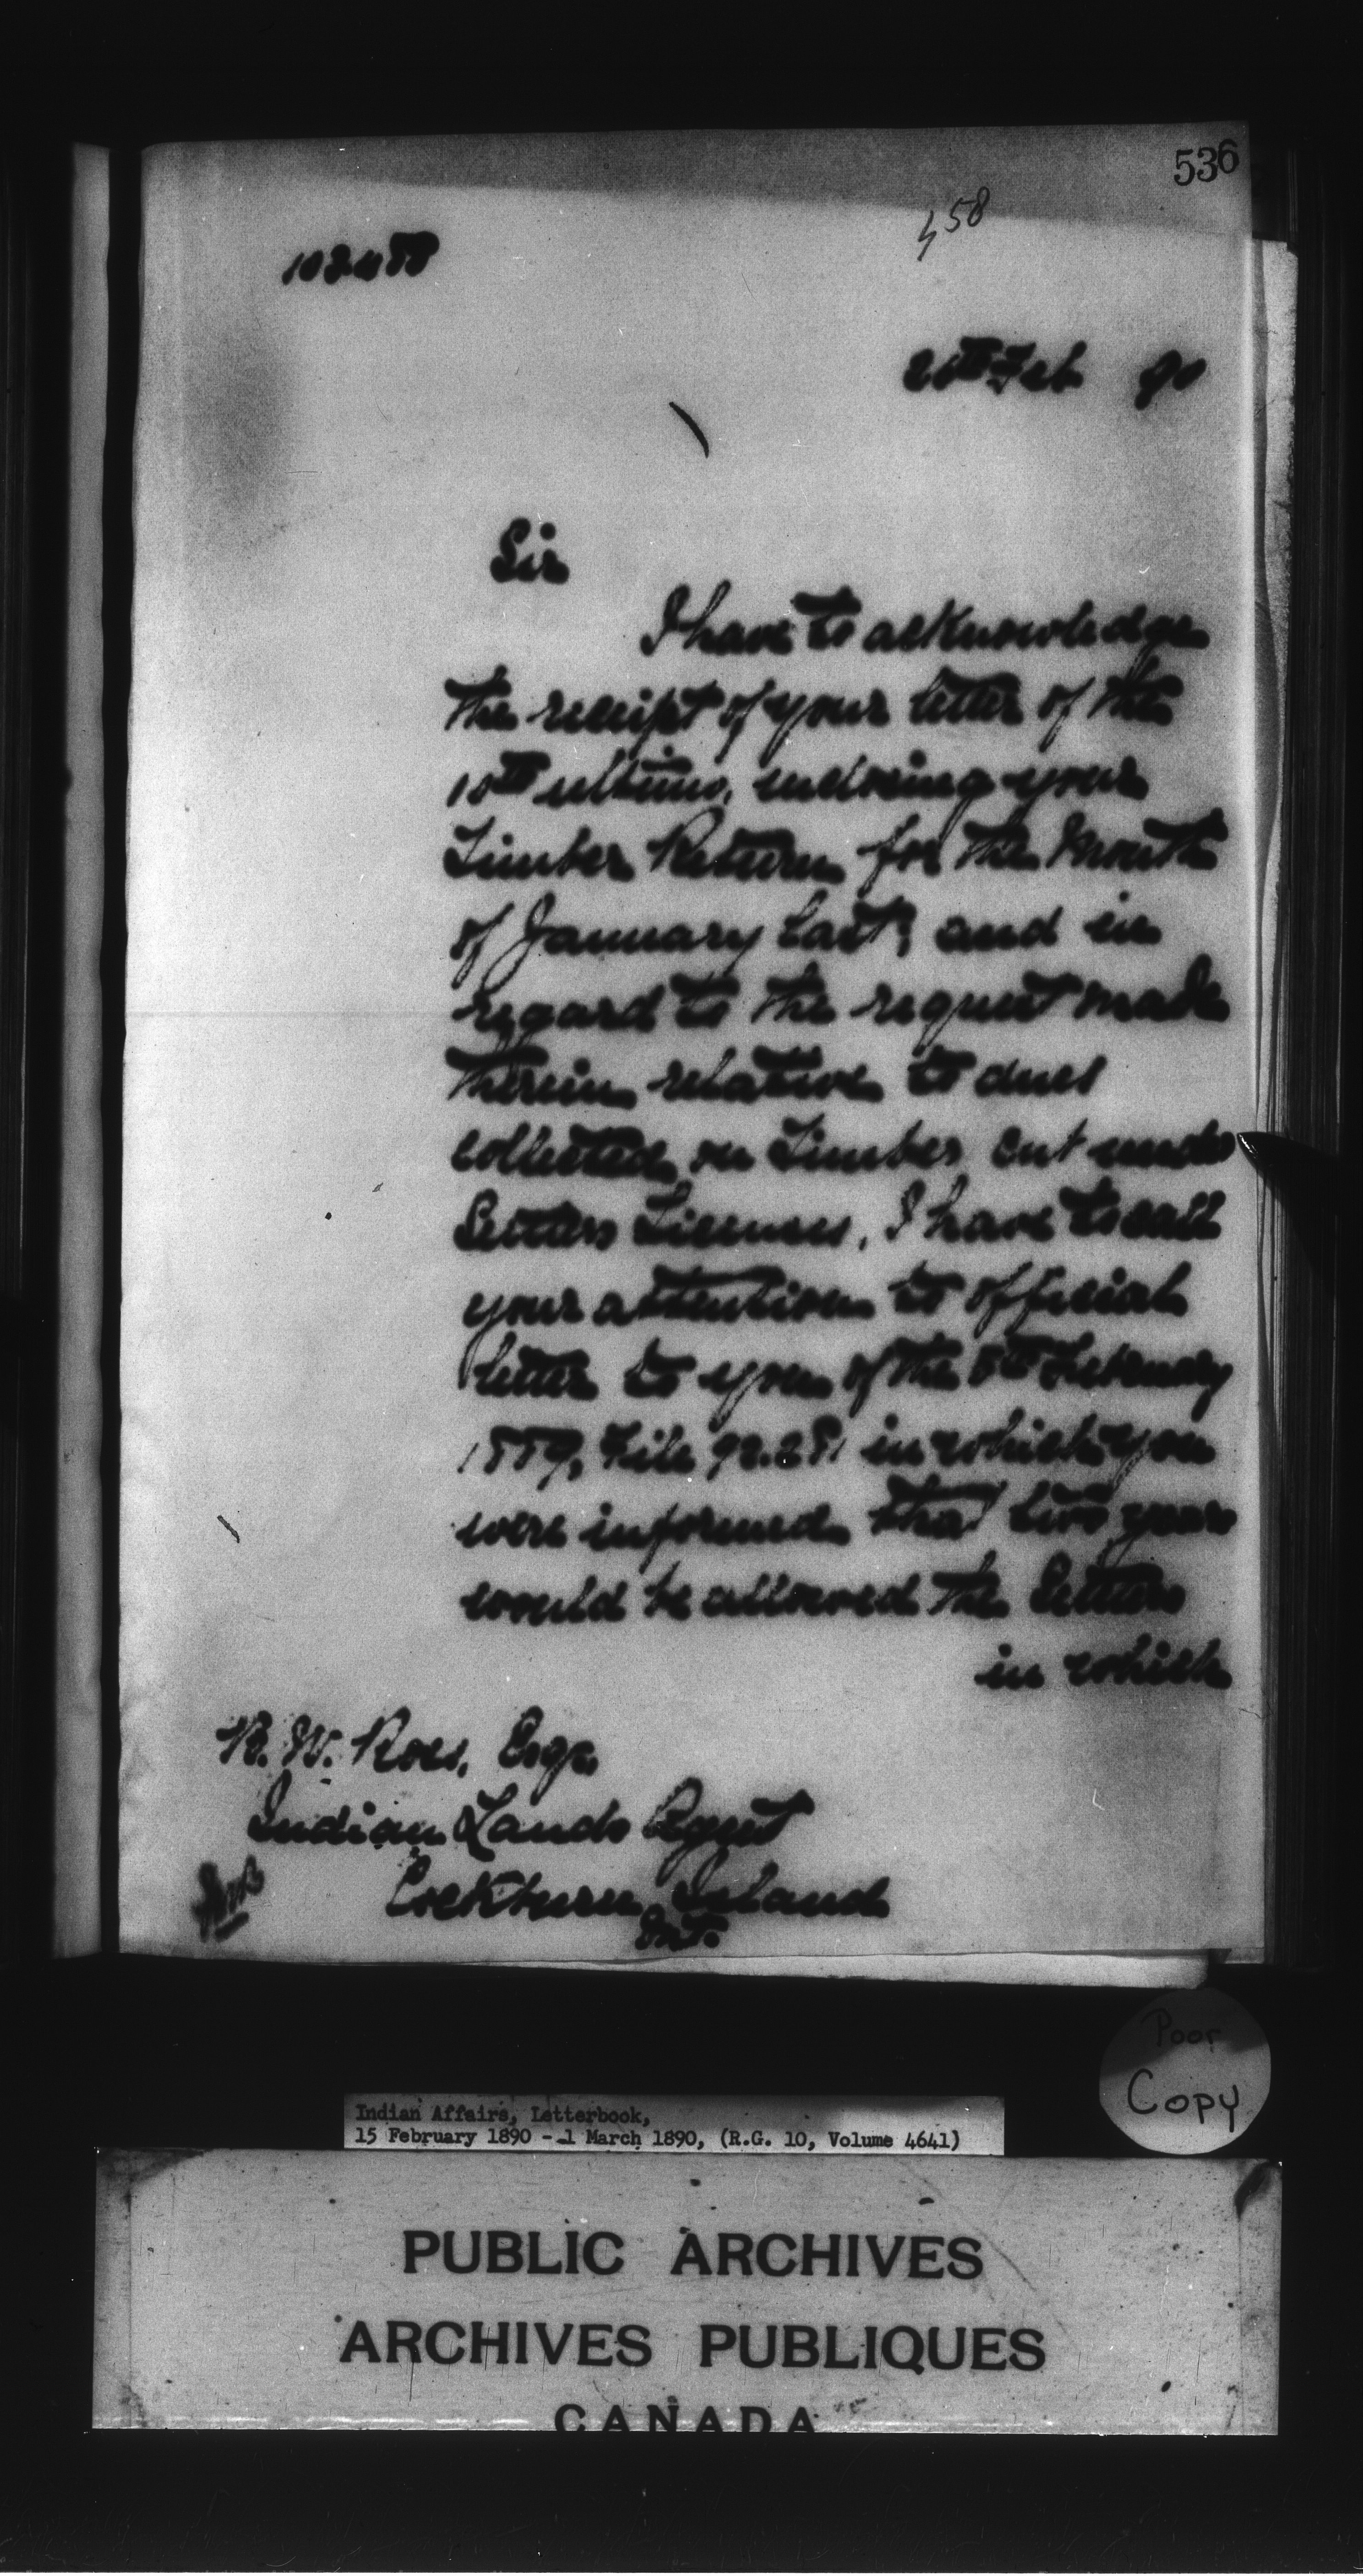 536
458
Feb 90
Sir
I have to acknowledge
the receipt of your letter of the
10th ultimo, enclosing your
Timber Return for the Month
of January last, and in
regard to the request made
therein relative to dues
collected on Timber cut under
Settlers Licenses, I have to call
your attention to official
letter to you of the 8th February
1889, File 92.281 in which you
were informed that two years
would be allowed the Settlers
in which
B. W. Ross, Esqr.
Indian Lands Agent
Cockburn Island
Ont.
Poor
Copy
Indian Affairs, Letterbook,
15 February 1890 - 1 March 1890, (R.G. 10, Volume 4641)
PUBLIC ARCHIVES
ARCHIVES PUBLIQUES
CANADA